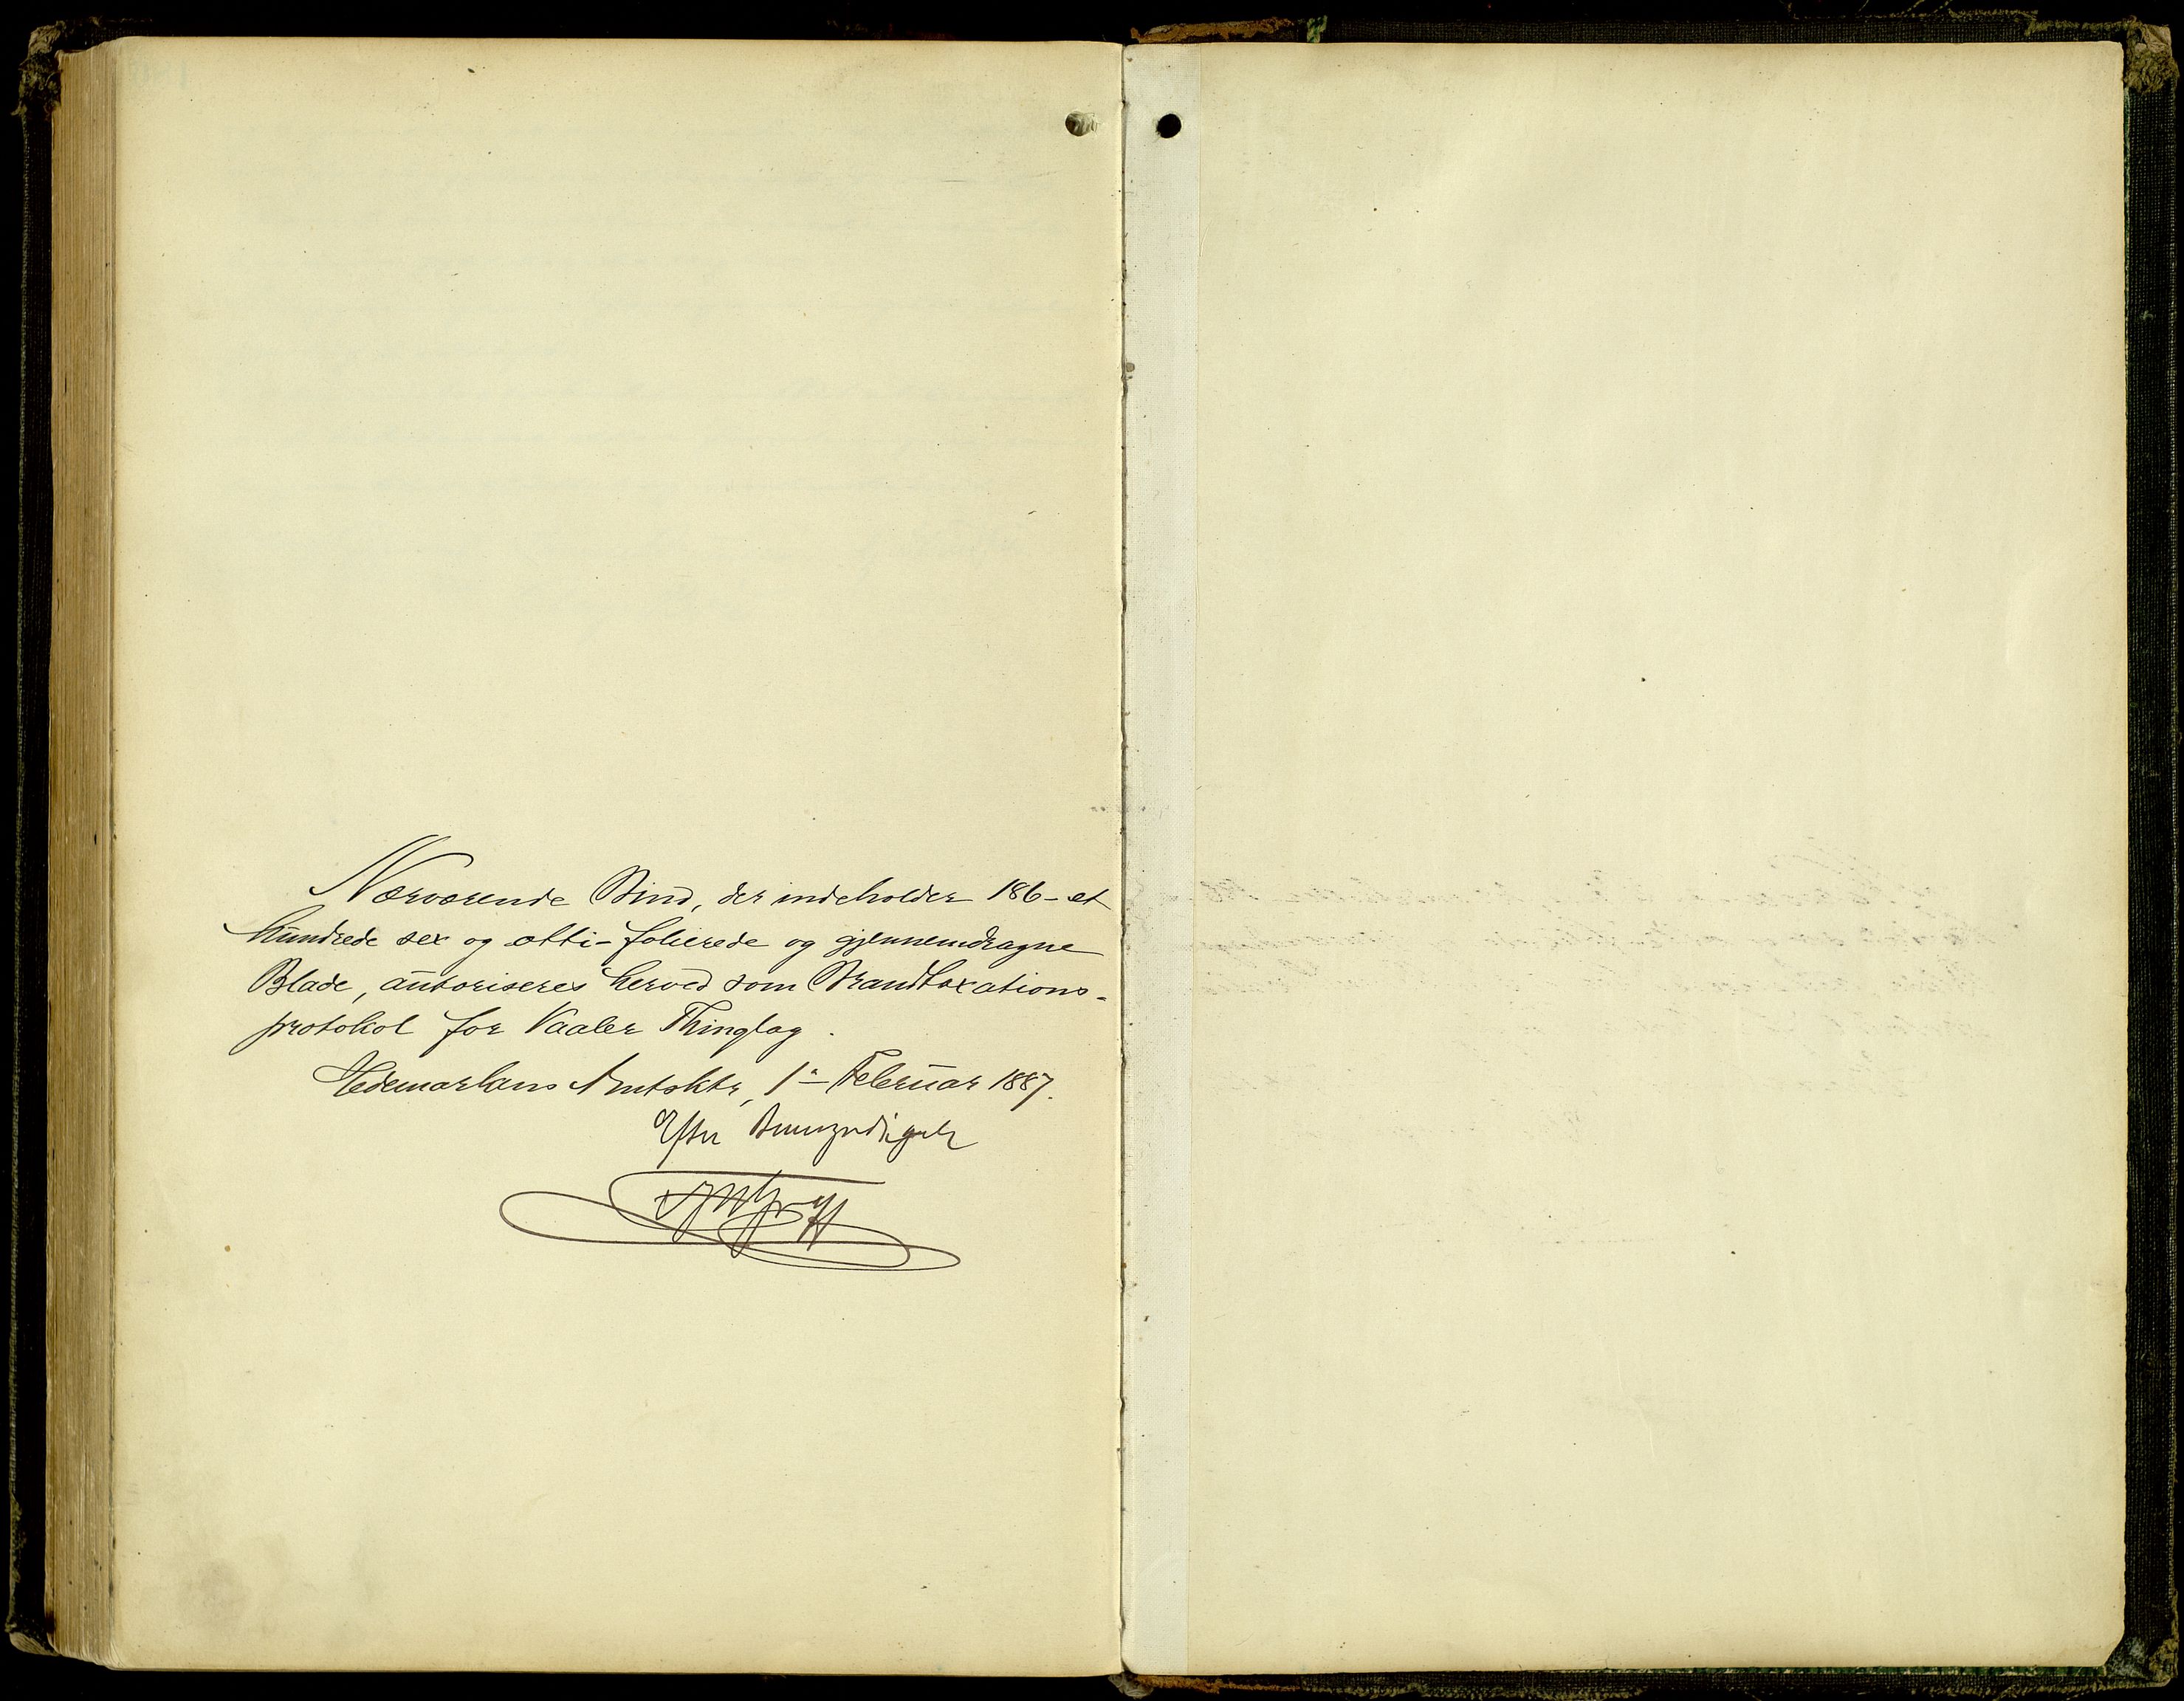 Nærværende Bind, der indeholder 186 - et
hundrede sex og otti - folierede og gjennemdragne
Blade, autoriseres herved som Brandtaxations-
protokol for Vaaler Thinglag.
Hedemarkens Amtsktr, 1ste Februar 1887.
Efter Bemyndigelse